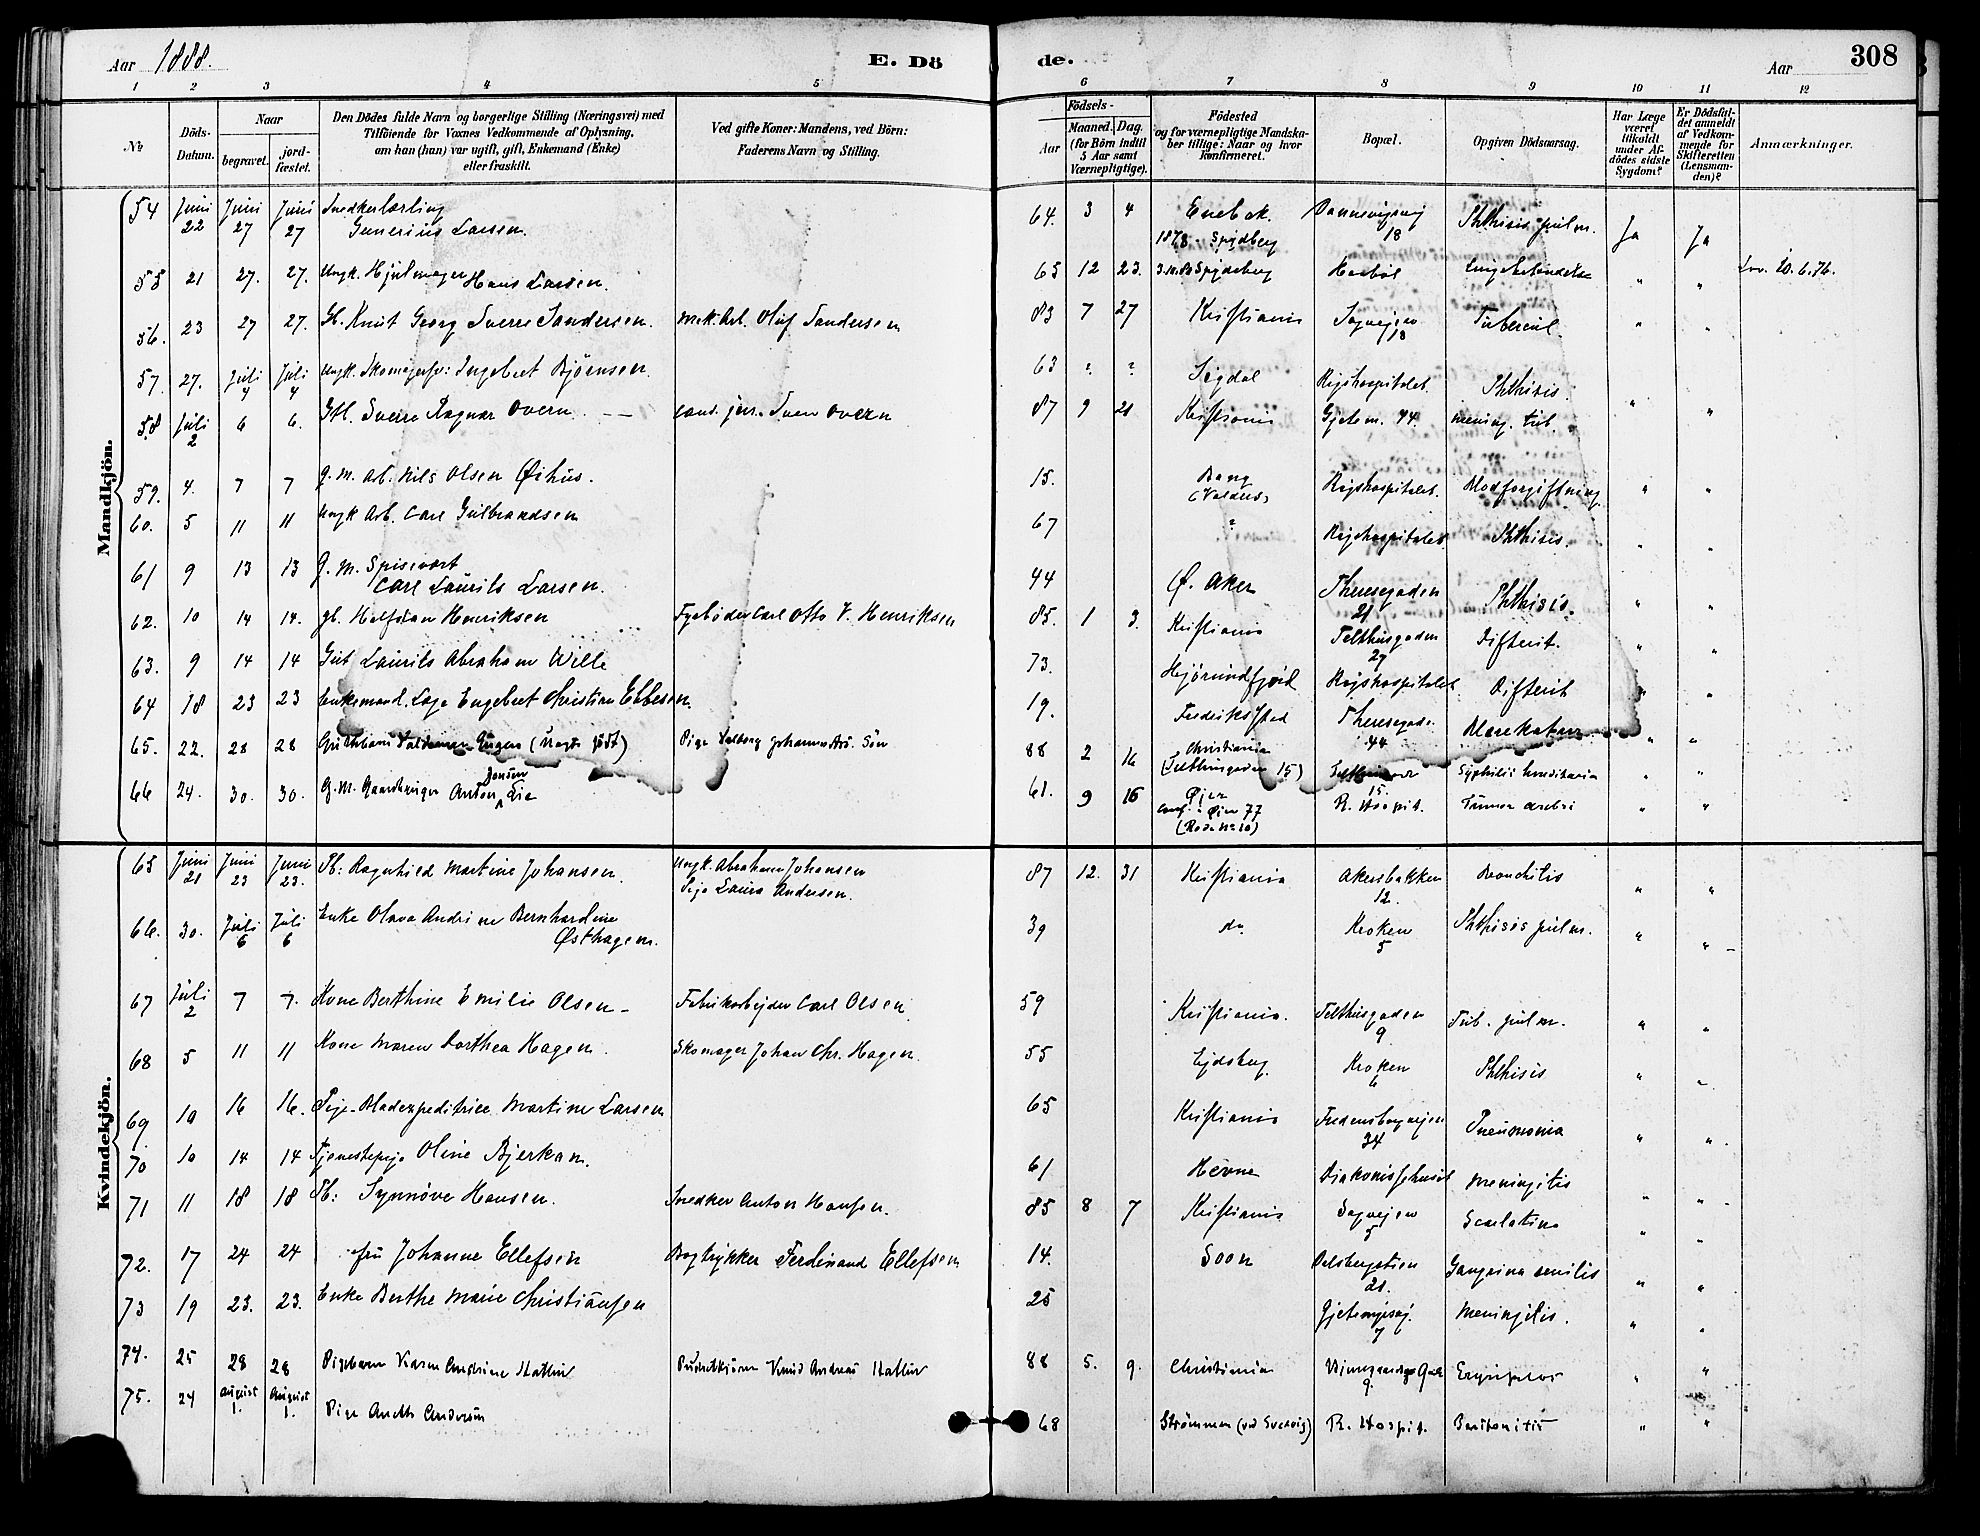 Aar 1888.
E. Döde.
Aar
308
1 2 3 4 5 6 7 8 9 10 11 12
No
Döds-Datum.
Naar
begravet.
jord-fæstet.
Den Dödes fulde Navn og borgerlige Stilling (Næringsvei) med
Tilföiende for Voxnes Vedkommende af Oplysning,
om han (hun) var ugift, gift, Enkemand (Enke)
eller fraskilt.
Ved gifte Koner: Mandens, ved Börn:
Faderens Navn og Stilling.
Födsels-
Aar
Maaned. Dag.
(for Börn indtil
5 Aar samt
Værnepligtige).
Födested
og for værnepligtige Mandska-
ber tillige: Naar og hvor
konfirmeret.
Bopæl.
Opgiven Dödsaarsag.
Har Læge
været
tilkaldt
under Af-
dödes sidste
Sygdom?
Er Dödsfal-
det anmeldt
af Vedkom-
mende for
Skifteretten
(Lensman-
den)?
Anmærkninger.
Mandkjön.
54 Juni 22 Juni 27 Juni 27 Snedkerlærling Gunerius Larsen. 64. 3 4 Enebak. 1878 Spydberg 18 Phthisis pulm. Ja Ja
55 21 27. 27. Ungk. Hjulmager Hans Larsen. 65 12 23. Spydeberg " "
56. 23 27 27. Gb. Knut Georg Sverre Sandersen. Mek. Arb. Oluf Sandersen 83 7 27 Kristiania Sagvejen 18 Tubercul. " "
57. 27. Juli 4 Juli 4 Ungk. Ingebret Björnsen. 63 ? ? Sigdal Rigshospitalet. Phthisis. " "
58 Juli 2 6 6. Gb. Sverre Ragnar Overn cand. jur. Sven Overn 87 9 21 Kristiania Gjetem. 44. mening. tub. " "
59. 4. 7 7 g. M. Arb. Nils Olsen Öihus. 15. Bang (Valders) Rigshospitalet. Blodforgiftning " "
60. 5 11 11 Ungk Arb. Carl Gulbrandsen 67 ? Rigshospitalet Phthisis. " "
61 9 13 13 g. M. Spisevært Carl Laurits Larsen. 44 Ø. Aker Theresegaden 21 Phthisis. " "
62. 10 14 14. gb. Halfdan Henriksen Fyrböder Carl Otto V. Henriksen 85. 1 3. Kristiania Telthusgaden 27 Difterit. " "
63. 9 14 14 Gut Laurits Abraham Wille 73. Hjörundfjord Rigshospitalet Difterit " "
64 18 23 23 Enkemand. Engebret Christian Ebbesen 19. Fredriksstad Theresegade 44 " "
65. 22. 28 28 Gutebarn Valdemar Eugen (uægte födt) Pige Valborg Johannesens Sön 88 2 16 Christiania (Telthusgaden 15) 15. Syphilis hereditaria " "
66 24. 30. 30. G. M. Anton Jonsen Lie 61. 9 16 Öjer conf. i Öjer 77 (Rode No 10) R. Hospit. Tumor cerebri " "
Kvindekjön.
65 Juni 21 Juni 23 Juni 23. Pb: Ragnhild Martine Johansen. Ungk. Abraham Johansen Pige Laura Andersen. 87 12. 31 Kristiania Akersbakken 12. Bronchitis " "
66. 30. Juli 6 Juli 6 Enke Olava Andrine Bernhardine Østhagen. 39 do Kroken 5 Phthisis pulm. " "
67 Juli 2 7 7. Kone Berthine Emilie Olsen Fabrikarbejder Carl Olsen 59 Kristiania. Telthusgaden 9 Tub. pulm. " "
68 5 11 11 Kone Maren Dorthea Hagen. Skomager Johan Chr. Hagen. 55 Eidsberg Kroken 6 Phthisis " "
69 10 16 16. Pige. Bladexpeditrice Martine Larsen 65 Kristiania Fredensborgvejen 34 Pneumonia " "
70 10 14 14 Tjenestepige Oline Bjerkan. 61 Hevne Diakonissehuset Meningitis
71 11 18 18 Pb: Synnöve Hansen. Snedker Anton Hansen. 85 8 7 Kristiania Sagvejen 5 Scarlatina " "
72. 17 24 24 Fru Johanne Ellefsen Bogtrykker Ferdinand Ellefsen 14. Soon 21. Gangrena senilis " "
73 19 23. 23. Enke Berthe Marie Christiansen 25 7 Meningitis. " "
74. 25 28 28 Pigebarn Karen Andrine Hatlev Knud Andreas Hatlev 88 5. 9. Christiania 9. Erysipelas " "
75. 24 August 1. August 1. Pige Anette Anderson 68 Strömmen (ved Svelvig) R. Hospit. Peritonitis " "